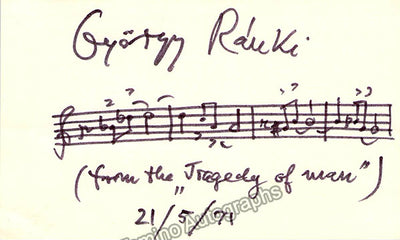 György Ránki
(from the „Tragedy of man")
21/5/71
Tamino Autographs